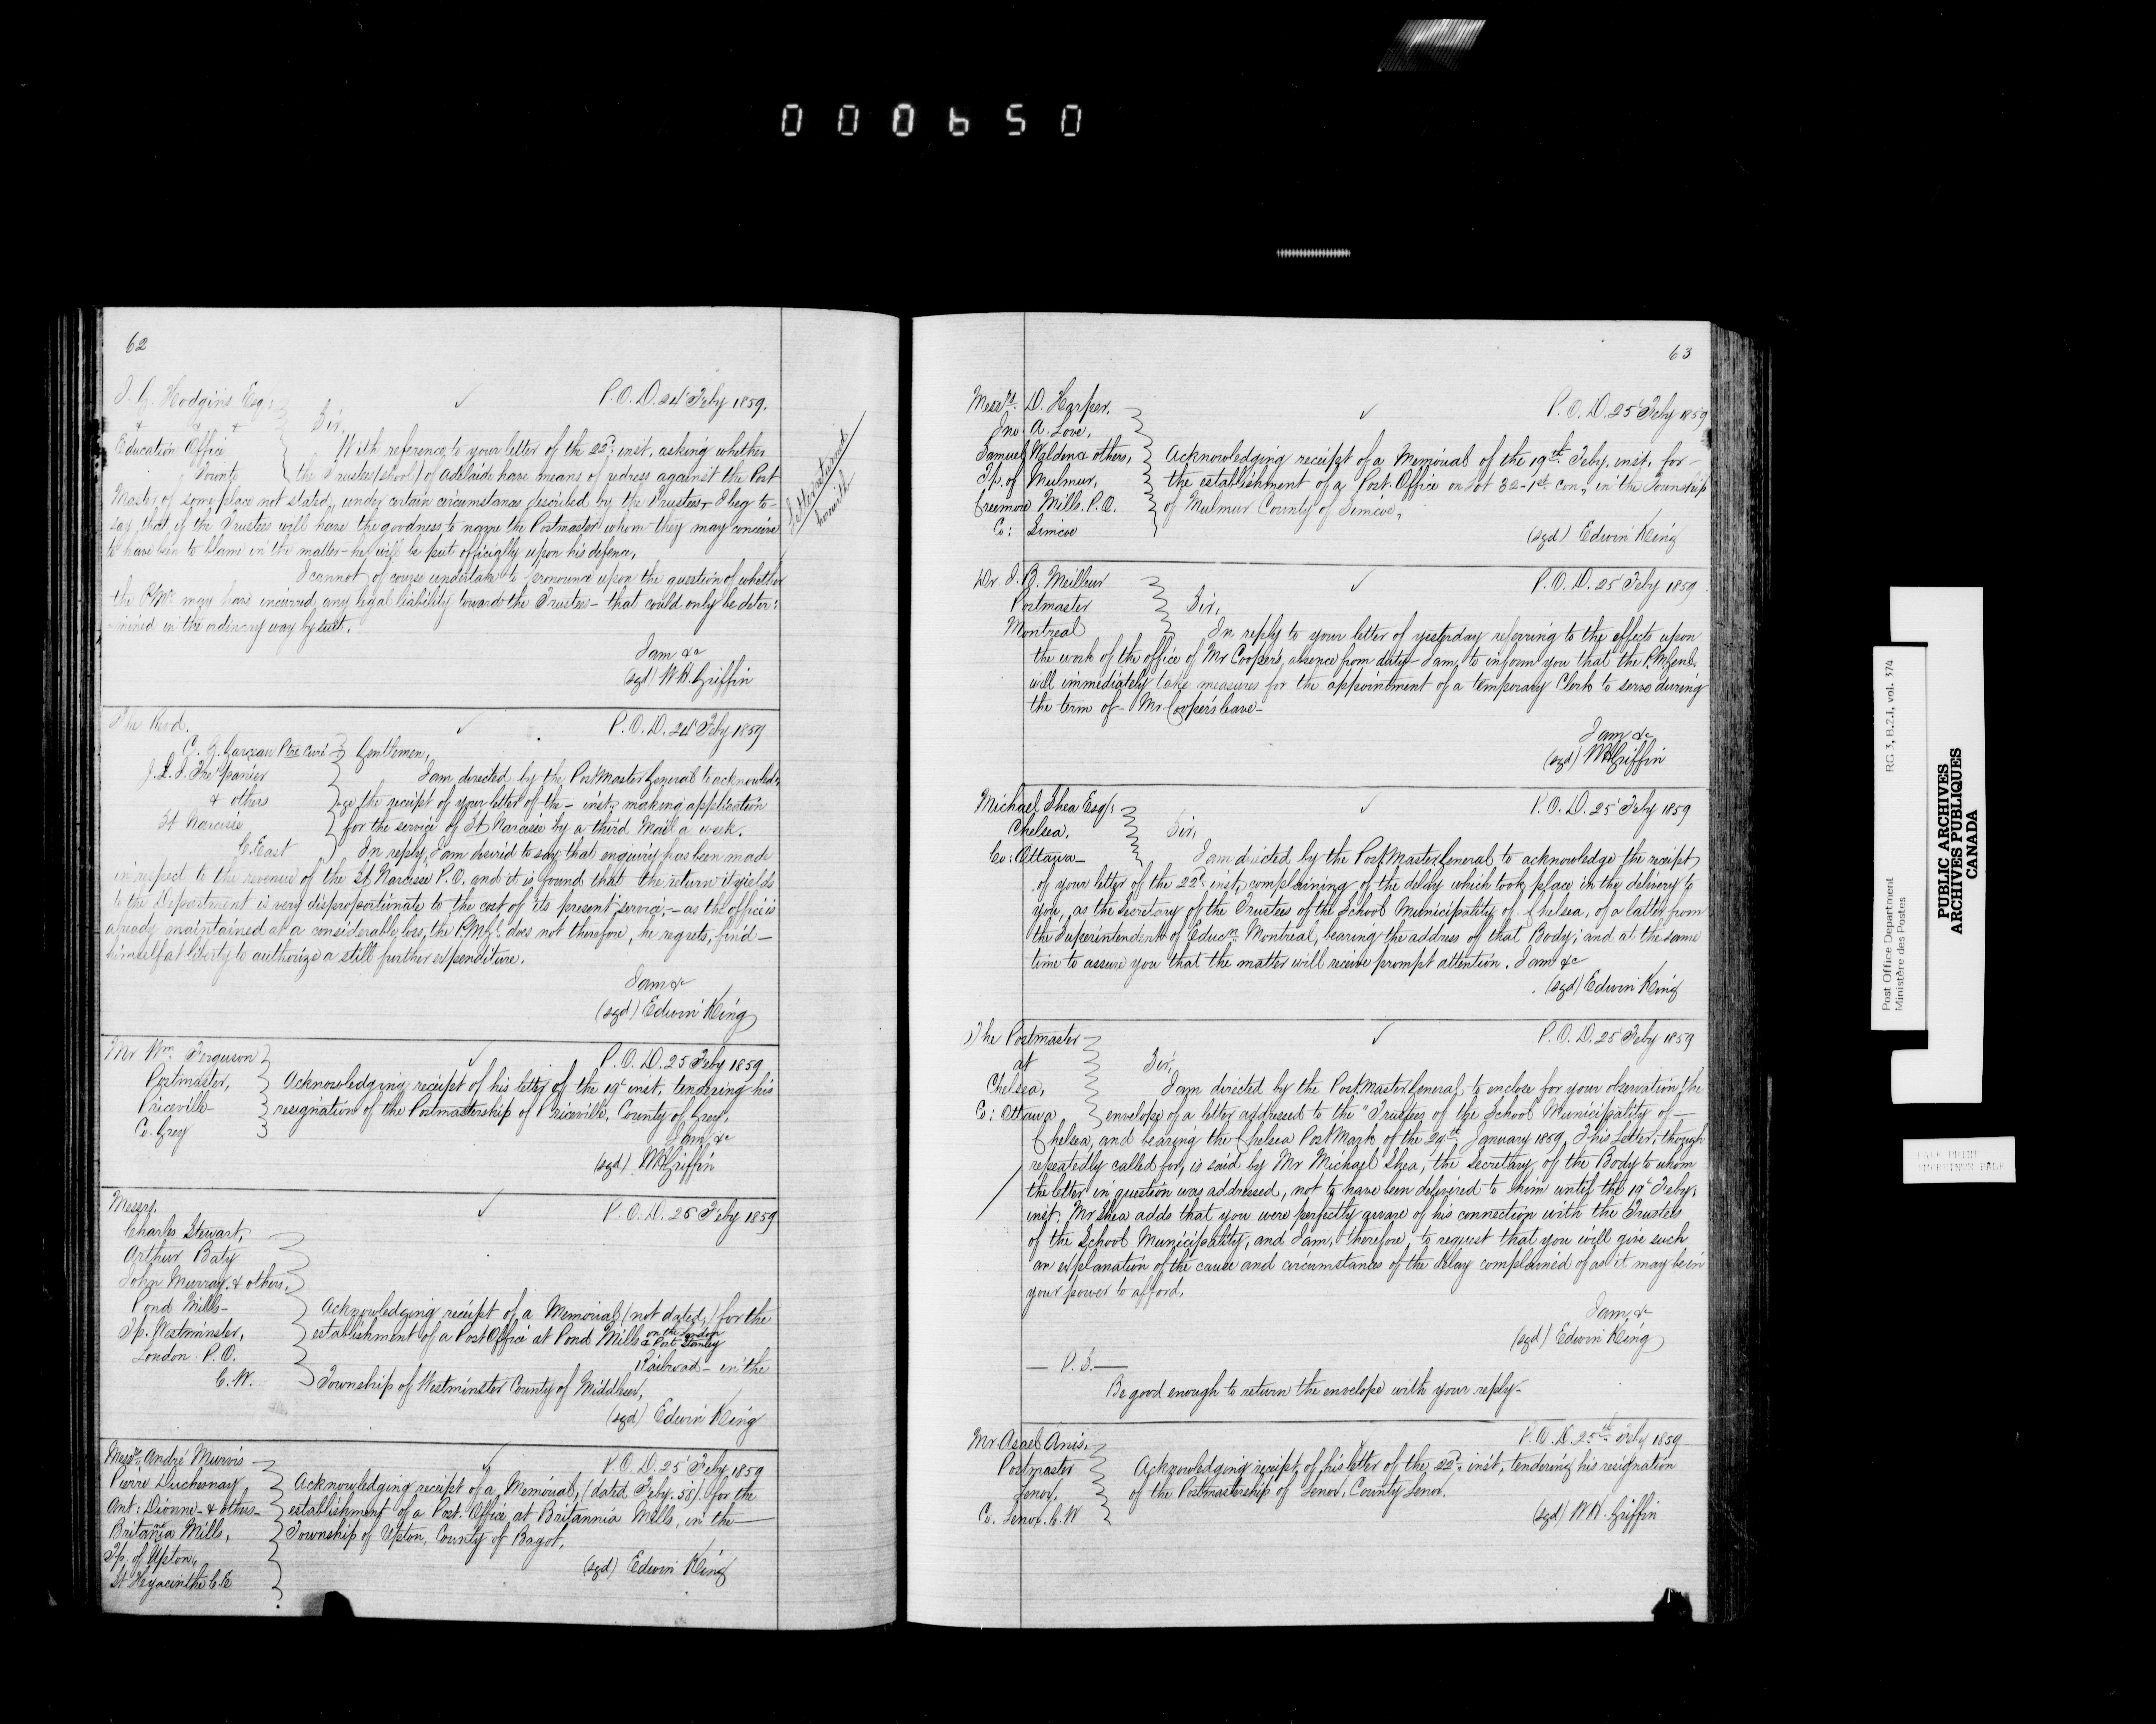 000650
62
J. G. Hodgins Esq:
P. O. D. 24 Feby 1859.
Education Office
Toronto
Sir,
With reference to your letter of the 22d inst, asking whether
the Trustees (school) of Adelaide have means of redress against the Post
Master of some place not stated, under certain circumstances described by the Trustees I beg to-
say that if the Trustees will have the goodness to name the Postmaster whom they may conceive
to have been to blame in the matter - he will be put officially upon his defence,
I cannot of course undertake to pronounce upon the question of whether
the P.Mr may have incurred any legal liability towards the Trustees - that could only be deter:
mined in the ordinary way by suit.
I am &c
(sgd) W. H. Griffin
Letter returned
herewith
The Revd.
P. O. D. 24 Feby 1859
Ptre Curé
& others
St Narcisse
C. East
Gentlemen,
I am directed by the PostMaster General to acknowled-
ge the receipt of your letter of the - inst, making application
for the service of St Narcisse by a third Mail a week.
In reply, I am desired to say that enquiry has been made
in respect to the revenue of the St Narcisse P.O. and it is found that the return it yields
to the Department is very disproportionate to the cost of its present service, - as the office is
already maintained at a considerable loss, the P.M.Gl. does not therefore, he regrets, find -
himself at liberty to authorize a still further expenditure.
I am &c
(sgd) Edwin King
Mr Wm Ferguson
P. O. D. 25 Feby 1859.
Postmaster,
Priceville
Co. Grey
Acknowledging receipt of his letter of the 19t inst, tendering his
resignation of the Postmastership of Priceville, County of Grey,
I am &c
(sgd) W H Griffin
Messrs.
P. O. D. 25 Feby 1859
Charles Stewart,
Arthur Baty
John Murray & others,
Pond Mills-
Tp. Westminster,
London P.O.
C. W.
Acknowledging receipt of a Memorial (not dated,) for the
establishment of a Post Office at Pond Mills on the London
& Port Stanley
Railroad - in the
Township of Westminster County of Middlesex,
(sgd) Edwin King
Messrs. André
P. O. D. 25 Feby 1859
Pierre Duchesnay
Ant: Dionne & others -
Britania Mills,
Tp. of Upton,
St. Hyacinthe C. E
Acknowledging receipt of a Memorial, (dated Feby. 58) for the
establishment of a Post Office at Britannia Mills, in the
Township of Upton, County of Bagot,
(sgd) Edwin King
63
Messrs. D. Harper,
P. O. D. 25 Feby 1859
Jno. A. Love,
Samuel Walden & others,
Tp. of Mulmur,
Creemore Mills. P.O.
Co: Simcoe
Acknowledging receipt of a Memorial of the 19th Feby. inst, for -
the establishment of a Post Office on Lot 32 - 1st con, in the Township
of Mulmur County of Simcoe,
(sgd) Edwin King
Dr. J. B. Meilleur
P. O. D. 25 Feby 1859
Postmaster
Montreal
Sir,
In reply to your letter of yesterday referring to the effects upon
the work of the office of Mr Cooper's absence from duty - I am, to inform you that the P.M.Genl.
will immediately take measures for the appointment of a temporary Clerk to serve during
the term of - Mr Cooper's leave -
I am &c
(sgd) W H Griffin
Michael Shea Esqr:
P. O. D. 25 Feby 1859
Chelsea,
Co: Ottawa -
Sir,
I am directed by the PostMaster General to acknowledge the receipt
of your letter of the 22d inst, complaining of the delay which took place in the delivery to
you, as the Secretary of the Trustees of the School Municipality of Chelsea, of a letter from
the Superintendent of Educn. Montreal, bearing the address of that Body; and at the same
time to assure you that the matter will receive prompt attention. I am &c
(sgd) Edwin King
The Postmaster
P. O. D. 25 Feby 1859
at
Chelsea,
Co: Ottawa
Sir,
I am directed by the PostMaster General, to enclose for your observation the
envelope of a letter addressed to the "Trustees of the School Municipality of -
Chelsea, and bearing the Chelsea PostMark of the 29th January 1859, This Letter, though
repeatedly called for, is said by Mr Michael Shea, the Secretary of the Body to whom
the letter in question was addressed, not to have been delivered to him until the 19t Feby.
inst. Mr Shea adds that you were perfectly aware of his connection with the Trustees
of the School Municipality, and I am, therefore, to request that you will give such
an explanation of the cause and circumstances of the delay complained of as it may be in
your power to afford,
I am, &c
(sgd) Edwin King
- P. S. -
Be good enough to return the envelope with your reply -
Mr. Asael Anis,
P. O. D. 25th Feby 1859
Postmaster
Lenox,
Co. Lenox. C. W
Acknowledging receipt of his letter of the 22d inst, tendering his resignation
of the Postmastership of Lenox, County Lenox.
(sgd) W H. Griffin
Post Office Department
Ministère des Postes
RG 3, B.2.1, vol. 374
PUBLIC ARCHIVES
ARCHIVES PUBLIQUES
CANADA